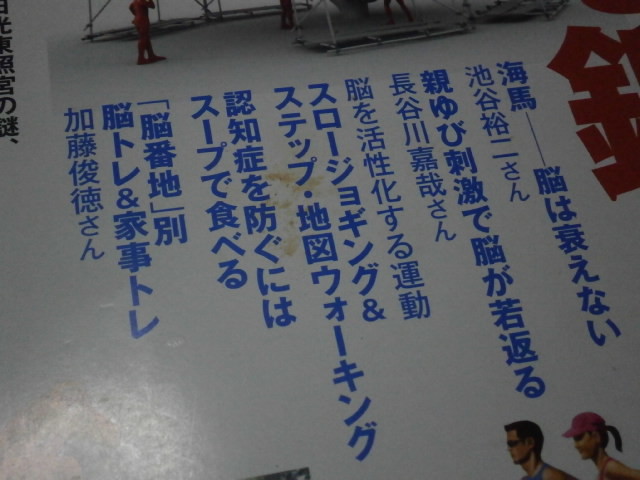 鍛
海馬――脳は衰えない
池谷裕二さん
親ゆび刺激で脳が若返る
長谷川嘉哉さん
脳を活性化する運動
スロージョギング&
ステップ・地図ウォーキング
認知症を防ぐには
スープで食べる
「脳番地」別
脳トレ&家事トレ
加藤俊徳さん
日光東照宮の謎、